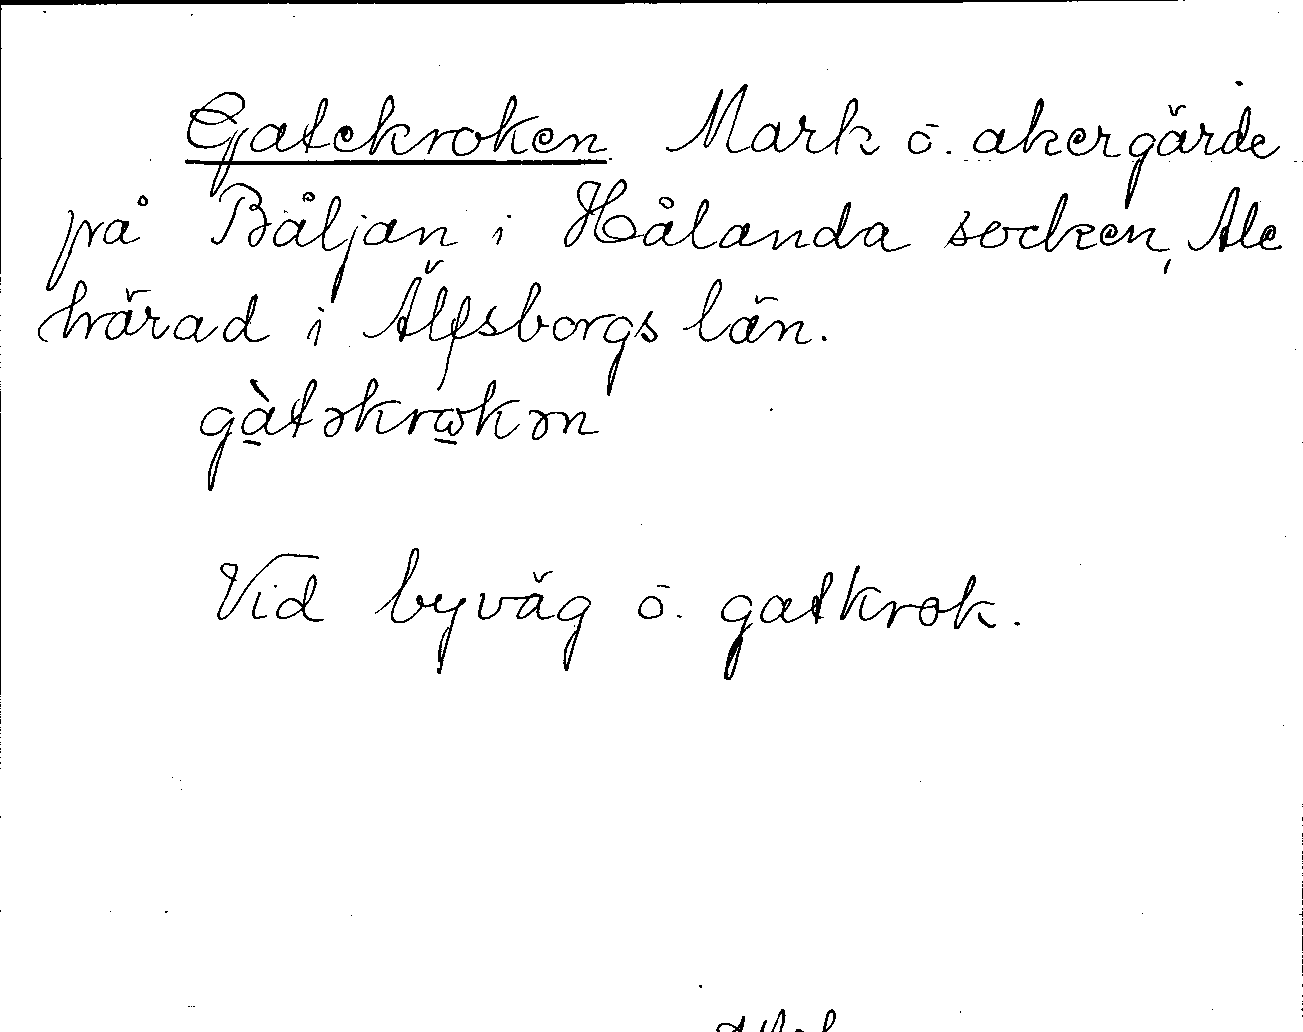 Gatekroken Mark ö. akergärde
på Båljan i Hålanda socken, Ale
härad i Älfsborgs län.
gàtəkrωkən
Vid byväg ö. gatkrok.